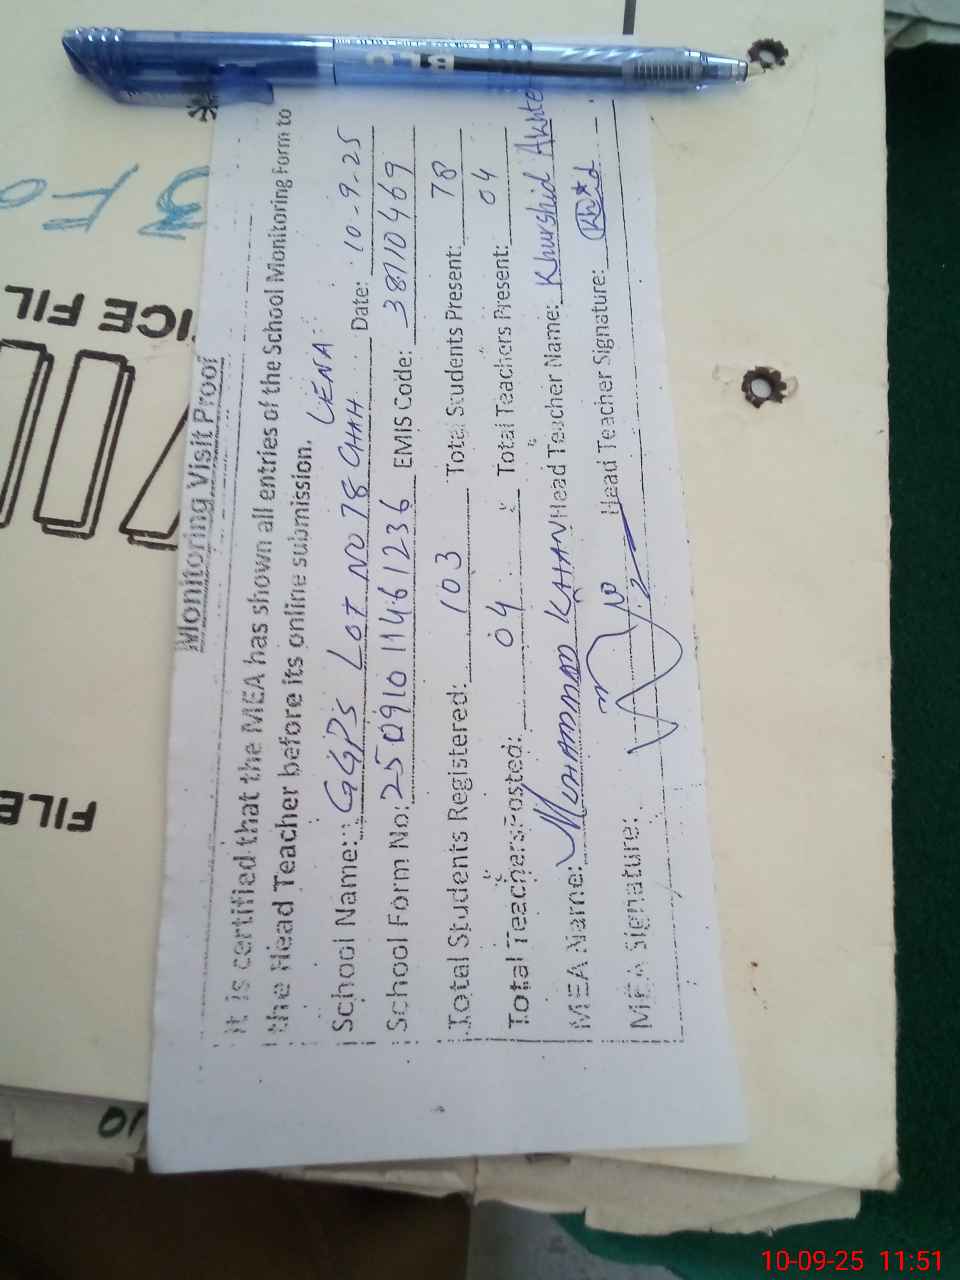 Monitoring Visit Proof
It is certified that the MEA has shown all entries of the School Monitoring Form to
the Head Teacher before its online submission. LENA
School Name: GGPS Lot No 78 Chah Date: 10-9-25
School Form No: 250910 11461236 EMIS Code: 38110469
Total Students Registered: 103 Total Students Present: 78
Total Teachers Posted: 04 Total Teachers Present: 04
MEA Name: Muhammad Head Teacher Name: Khurshid Akhte
MEA Signature: Head Teacher Signature:
ICE FIL
FILE
10
10-09-25 11:51